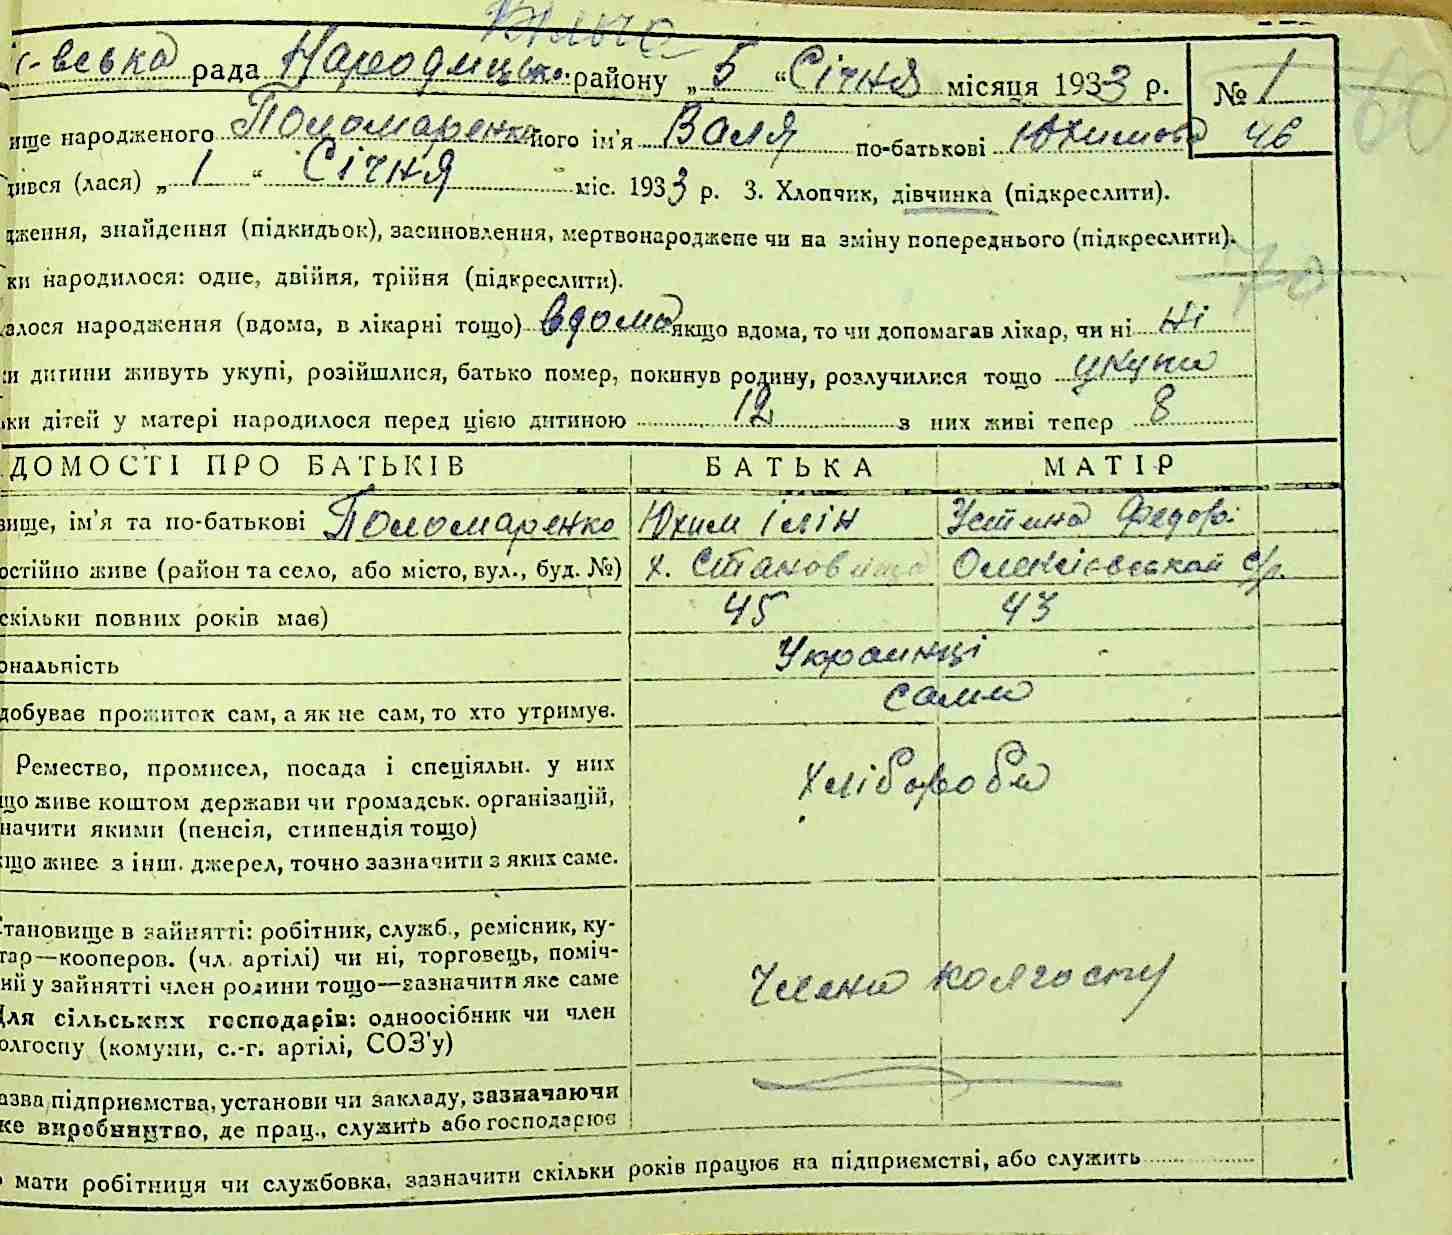 -вська рада Народицько. району „5“ Січня місяця 1933 р. № 1
ище народженого Пономаренко його ім'я Валя по-батькові Юхимова 46
дився (лася) „1“ Січня міс. 1933 р. 3. Хлопчик, дівчинка (підкреслити).
дження, знайдення (підкидьок), засиновлення, мертвонароджене чи на зміну попереднього (підкреслити).
ки народилося: одне, двійня, трійня (підкреслити).
70
алося народження (вдома, в лікарні тощо) вдома якщо вдома, то чи допомагав лікар, чи ні ні
ки дитини живуть укупі, розійшлися, батько помер, покинув родину, розлучилися тощо укупи
ки дітей у матері народилося перед цією дитиною 12 з них живі тепер 8
ДОМОСТІ ПРО БАТЬКІВ БАТЬКА МАТІР
вище, ім'я та по-батькові Пономаренко Юхим Ілін Устина Федор.
остійно живе (район та село, або місто, вул., буд. №) х. Становище с/р.
скільки повних років має) 45 43
ональність Украинці
добуває прожиток сам, а як не сам, то хто утримує. сами
Ремество, промисел, посада і спеціяльн. у них Хлібороби
що живе коштом держави чи громадськ. організацій,
начити якими (пенсія, стипендія тощо)
кщо живе з інш. джерел, точно зазначити з яких саме.
Становище в зайнятті: робітник, служб., ремісник, ку-
тар—кооперов. (чл. артілі) чи ні, торговець, поміч-
ний у зайнятті член родини тощо—зазначити яке саме Члени колгоспу
Для сільських господарів: одноосібник чи член
олгоспу (комуни, с.-г. артілі, СОЗ'у)
азва підприємства, установи чи закладу, зазначаючи
ке виробництво, де прац., служить або господарює
мати робітниця чи службовка, зазначити скільки років працює на підприємстві, або служить